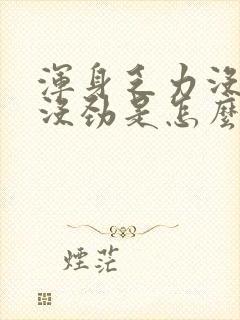 渾身乏力沒
沒勁是怎麼
煙茫